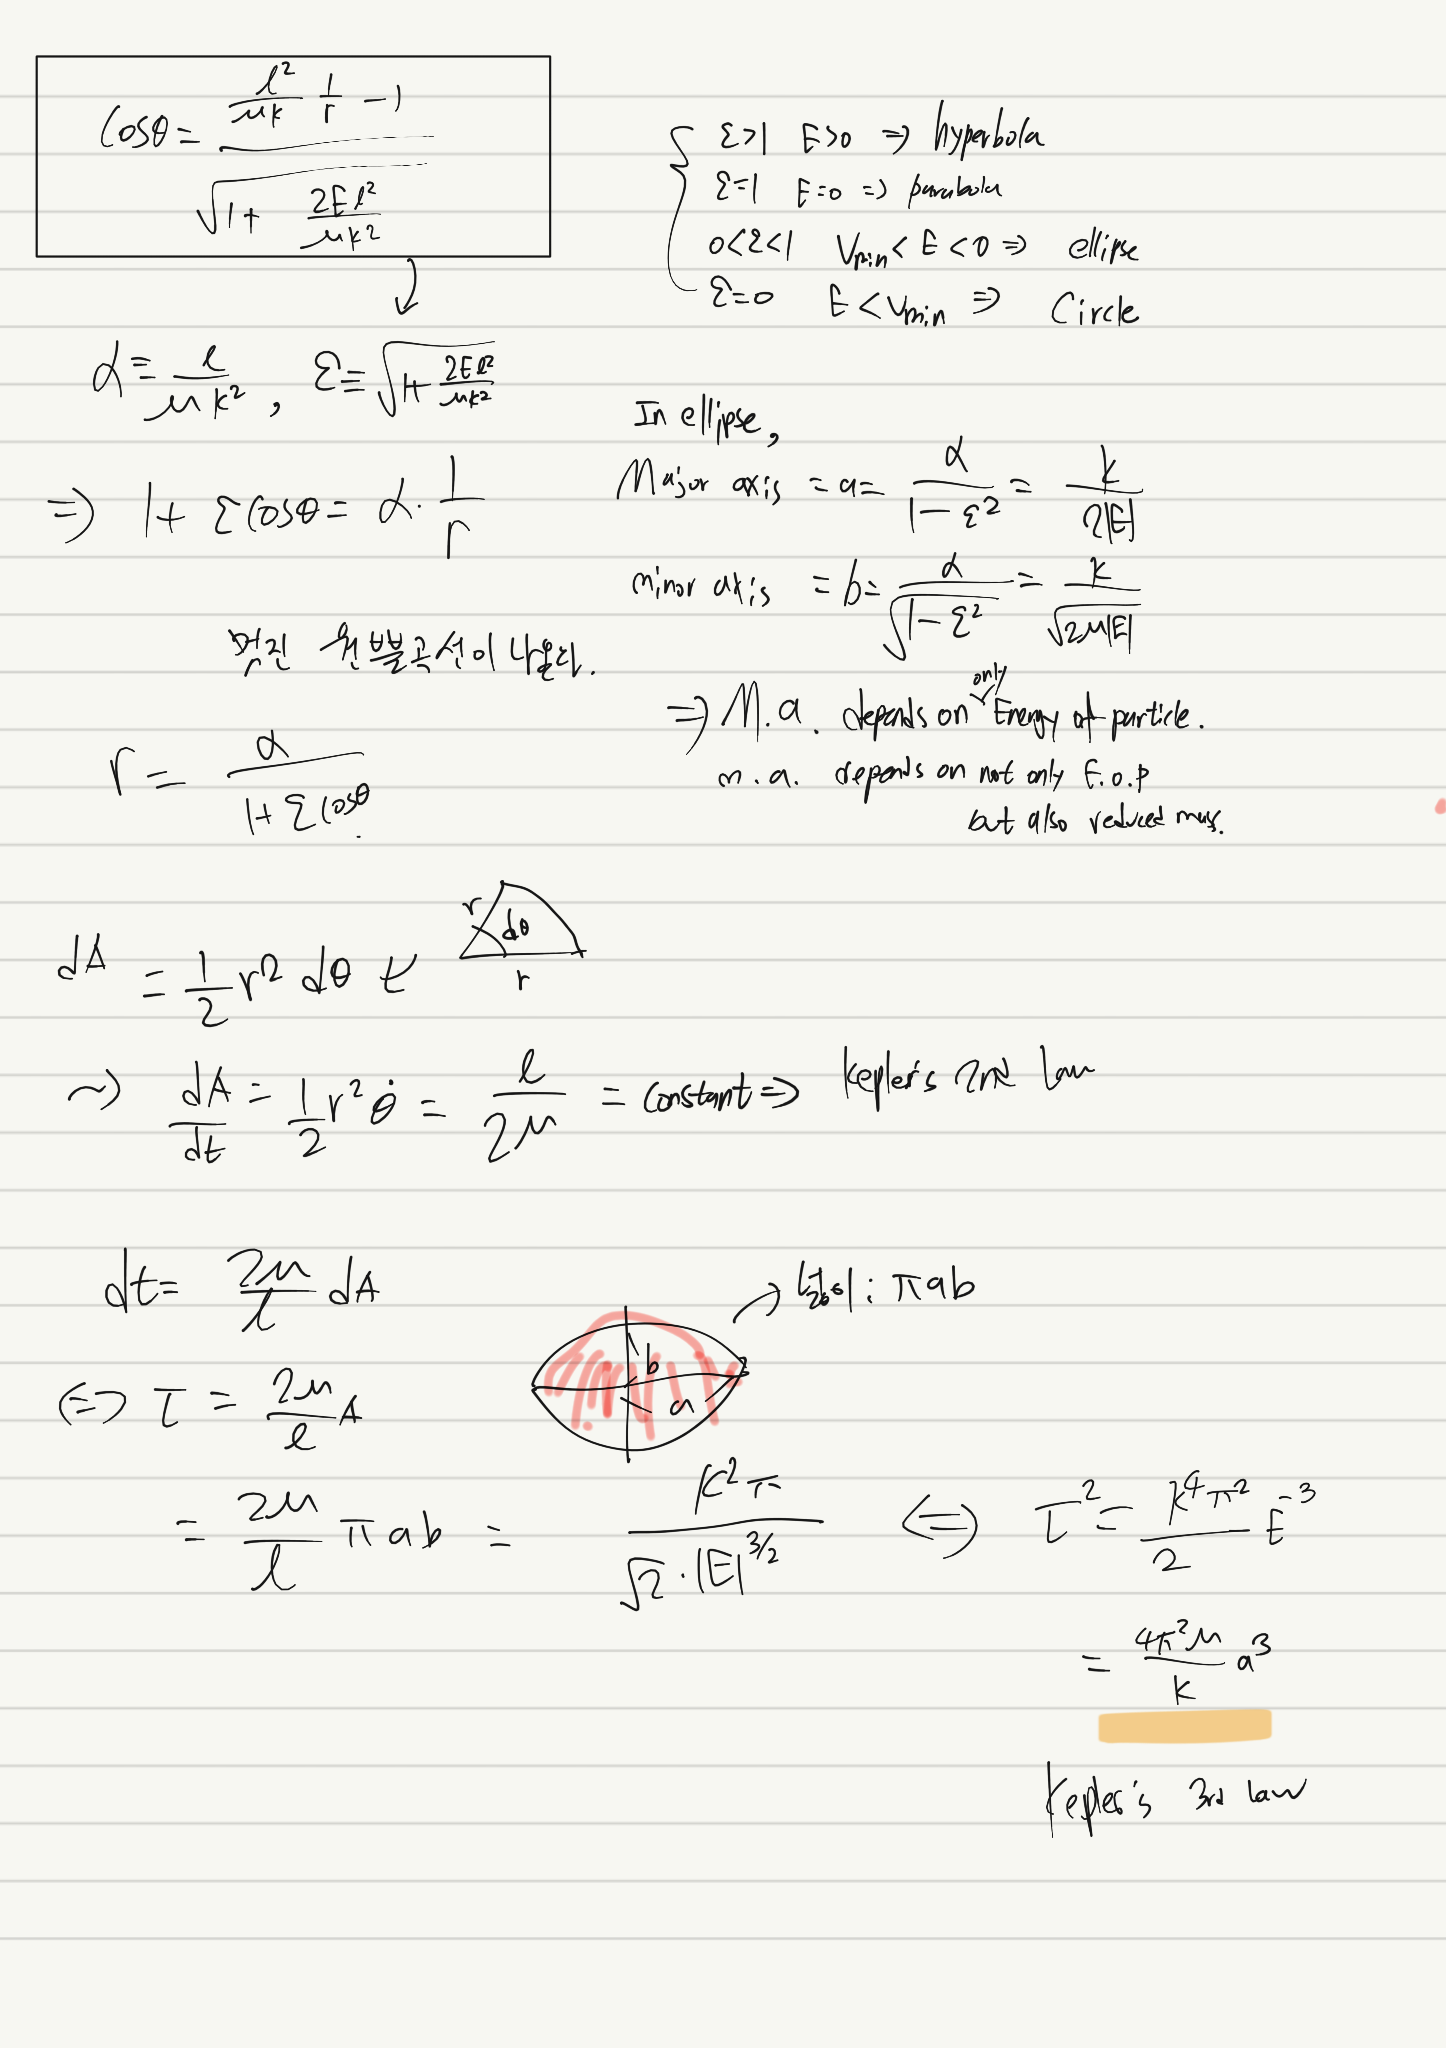 cosθ = (ℓ²/μk 1/r − 1) / √(1 + 2Eℓ²/μk²)
α ≡ ℓ/μk² , ε ≡ √(1 + 2Eℓ²/μk²)
⇒ 1 + ε cosθ = α · 1/r
멋진 원뿔곡선이 나온다.
r = α / (1 + ε cosθ)
ε>1 E>0 ⇒ hyperbola
ε=1 E=0 ⇒ parabola
0<ε<1 Vmin < E < 0 ⇒ ellipse
ε=0 E < Vmin ⇒ Circle
In ellipse,
Major axis = a = α/(1−ε²) = k/2|E|
minor axis = b = α/√(1−ε²) = k/√(2μ|E|)
⇒ M.a. depends on only Energy of particle.
m.a. depends on not only E.o.p
but also reduced mass.
dA = 1/2 r² dθ
r dθ
r
~> dA/dt = 1/2 r² θ̇ = ℓ/2μ = constant ⇒ Kepler's 2nd law
dt = 2μ/ℓ dA
: πab
b
a
⇔ τ = 2μ/ℓ A
= 2μ/ℓ πab = k²π / (√2 · |E|^3/2) ⇔ τ² = k⁴π²/2 E⁻³
= 4π²μ/k a³
Kepler's 3rd law